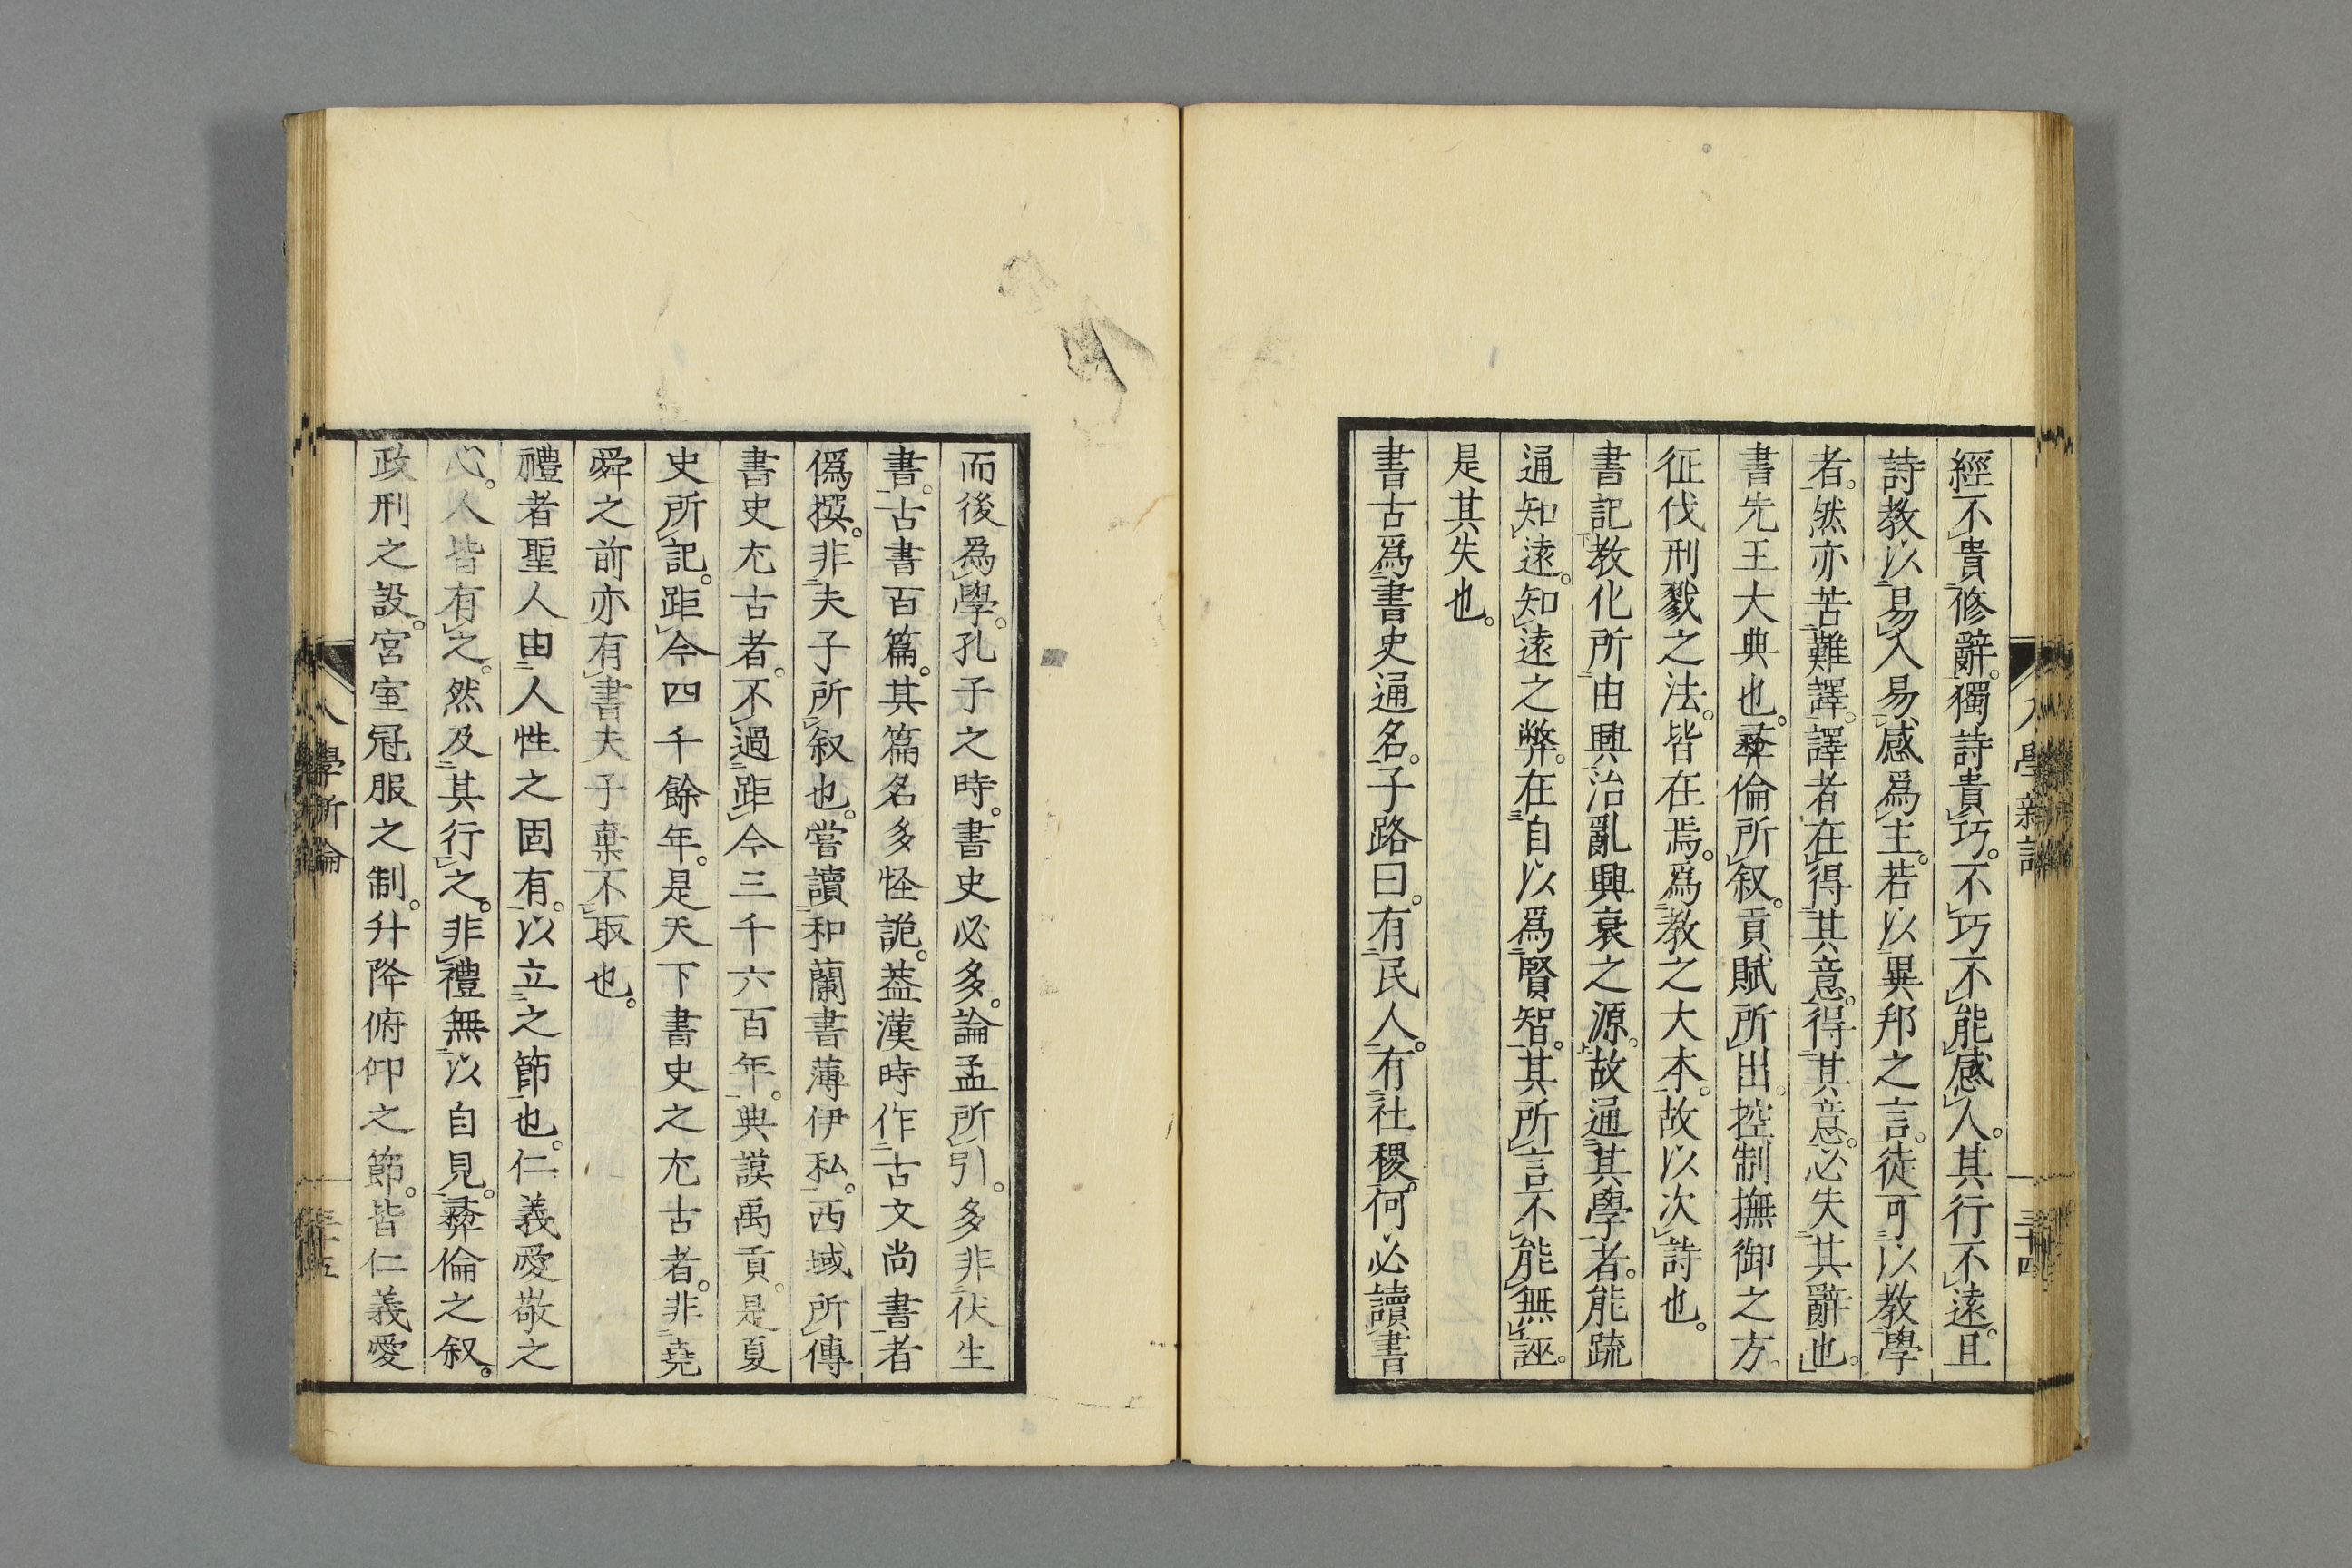 經不貴修辭。獨詩貴巧。不巧不能感人。其行不遠。且
詩教以易入易感爲主。若以異邦之言。徒可以教學
者。然亦苦難譯。譯者在得其意。得其意。必失其辭也。
書先王大典也。彜倫所叙。貢賦所出。控制撫御之方。
征伐刑戮之法。皆在焉。爲教之大本。故以次詩也。
書記教化所由興治亂興衰之源。故通其學者。能疏
通知遠。知遠之弊。在自以爲賢智。其所言不能無誣。
是其失也。
書古爲書史通名。子路曰。有民人。有社稷。何必讀書
而後爲學。孔子之時。書史必多。論孟所引。多非伏生
書。古書百篇。其篇名多怪詭。葢漢時作古文尚書者
僞撰。非夫子所叙也。嘗讀和蘭書薄伊私。西域所傳
書史尤古者。不過距今三千六百年。典謨禹貢。是夏
史所記。距今四千餘年。是天下書史之尤古者。非堯
舜之前亦有書夫子棄不取也。
禮者聖人由人性之固有。以立之節也。仁義愛敬之
心。人皆有之。然及其行之。非禮無以自見。彜倫之叙。
政刑之設。宮室冠服之制。升降俯仰之節。皆仁義愛
入學新論
三十四
入學新論
三十五